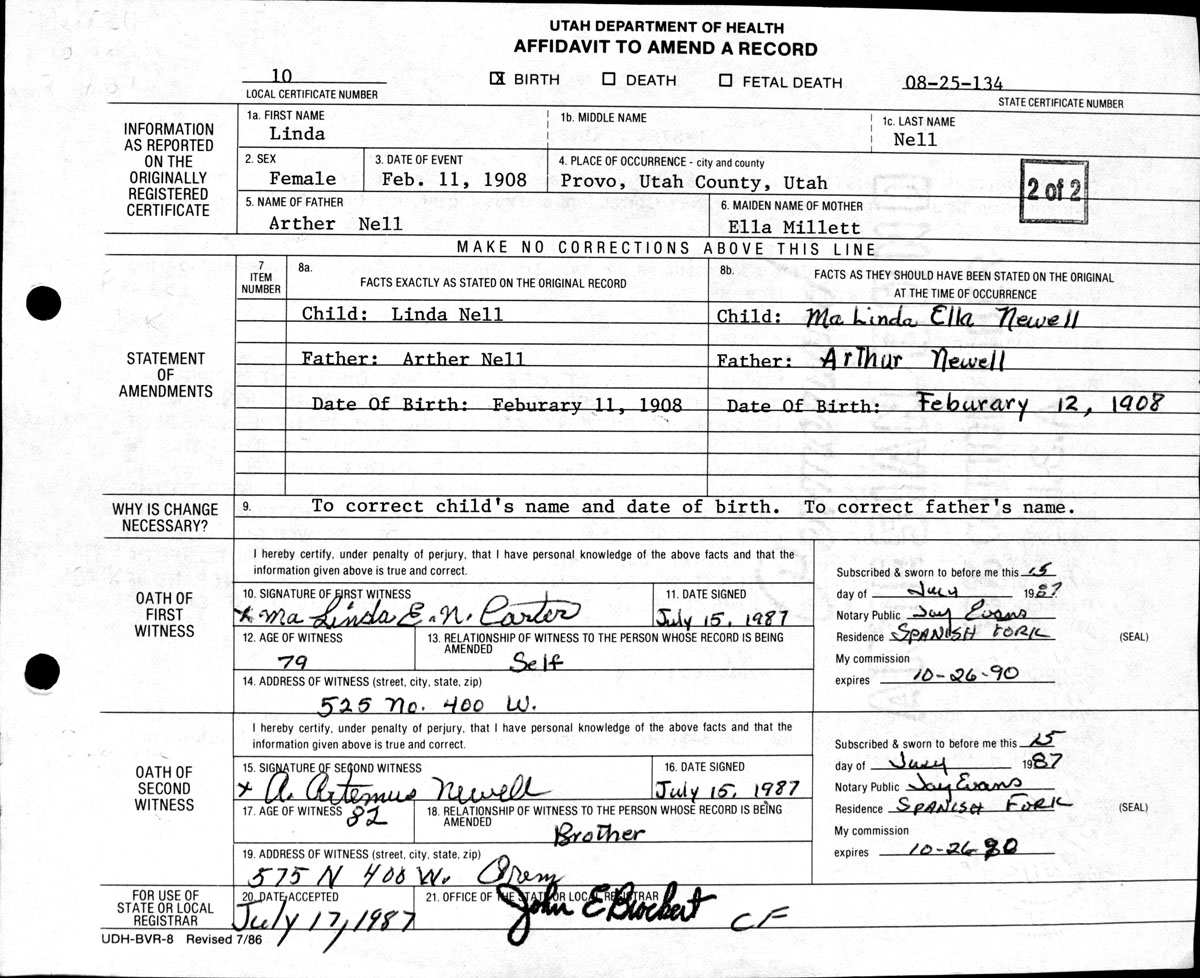 UTAH DEPARTMENT OF HEALTH
AFFIDAVIT TO AMEND A RECORD
10
LOCAL CERTIFICATE NUMBER
X BIRTH DEATH FETAL DEATH
08-25-134
STATE CERTIFICATE NUMBER
INFORMATION AS REPORTED ON THE ORIGINALLY REGISTERED CERTIFICATE
1a. FIRST NAME 1b. MIDDLE NAME 1c. LAST NAME
Linda Nell
2. SEX 3. DATE OF EVENT 4. PLACE OF OCCURRENCE - city and county
Female Feb. 11, 1908 Provo, Utah County, Utah
2 of 2
5. NAME OF FATHER 6. MAIDEN NAME OF MOTHER
Arther Nell Ella Millett
MAKE NO CORRECTIONS ABOVE THIS LINE
STATEMENT OF AMENDMENTS
7 ITEM NUMBER
8a. FACTS EXACTLY AS STATED ON THE ORIGINAL RECORD
8b. FACTS AS THEY SHOULD HAVE BEEN STATED ON THE ORIGINAL
AT THE TIME OF OCCURRENCE
Child: Linda Nell Child: Ma Linda Ella Newell
Father: Arther Nell Father: Arthur Newell
Date Of Birth: Feburary 11, 1908 Date Of Birth: Feburary 12, 1908
WHY IS CHANGE NECESSARY?
9. To correct child's name and date of birth. To correct father's name.
OATH OF FIRST WITNESS
I hereby certify, under penalty of perjury, that I have personal knowledge of the above facts and that the
information given above is true and correct.
10. SIGNATURE OF FIRST WITNESS 11. DATE SIGNED
x Ma Linda E. N. Carter July 15, 1987
12. AGE OF WITNESS 13. RELATIONSHIP OF WITNESS TO THE PERSON WHOSE RECORD IS BEING AMENDED
79 Self
14. ADDRESS OF WITNESS (street, city, state, zip)
525 No. 400 W.
Subscribed & sworn to before me this 15
day of July 1987
Notary Public Jay Evans
Residence SPANISH FORK (SEAL)
My commission
expires 10-26-90
OATH OF SECOND WITNESS
I hereby certify, under penalty of perjury, that I have personal knowledge of the above facts and that the
information given above is true and correct.
15. SIGNATURE OF SECOND WITNESS 16. DATE SIGNED
x A. Artemus Newell July 15, 1987
17. AGE OF WITNESS 82 18. RELATIONSHIP OF WITNESS TO THE PERSON WHOSE RECORD IS BEING AMENDED
Brother
19. ADDRESS OF WITNESS (street, city, state, zip)
575 N 400 W. Orem
Subscribed & sworn to before me this 15
day of July 1987
Notary Public Jay Evans
Residence SPANISH FORK (SEAL)
My commission
expires 10-26-90
FOR USE OF STATE OR LOCAL REGISTRAR
20. DATE ACCEPTED 21. OFFICE OF THE STATE OR LOCAL REGISTRAR
July 17, 1987 John E Brockert CF
UDH-BVR-8 Revised 7/86